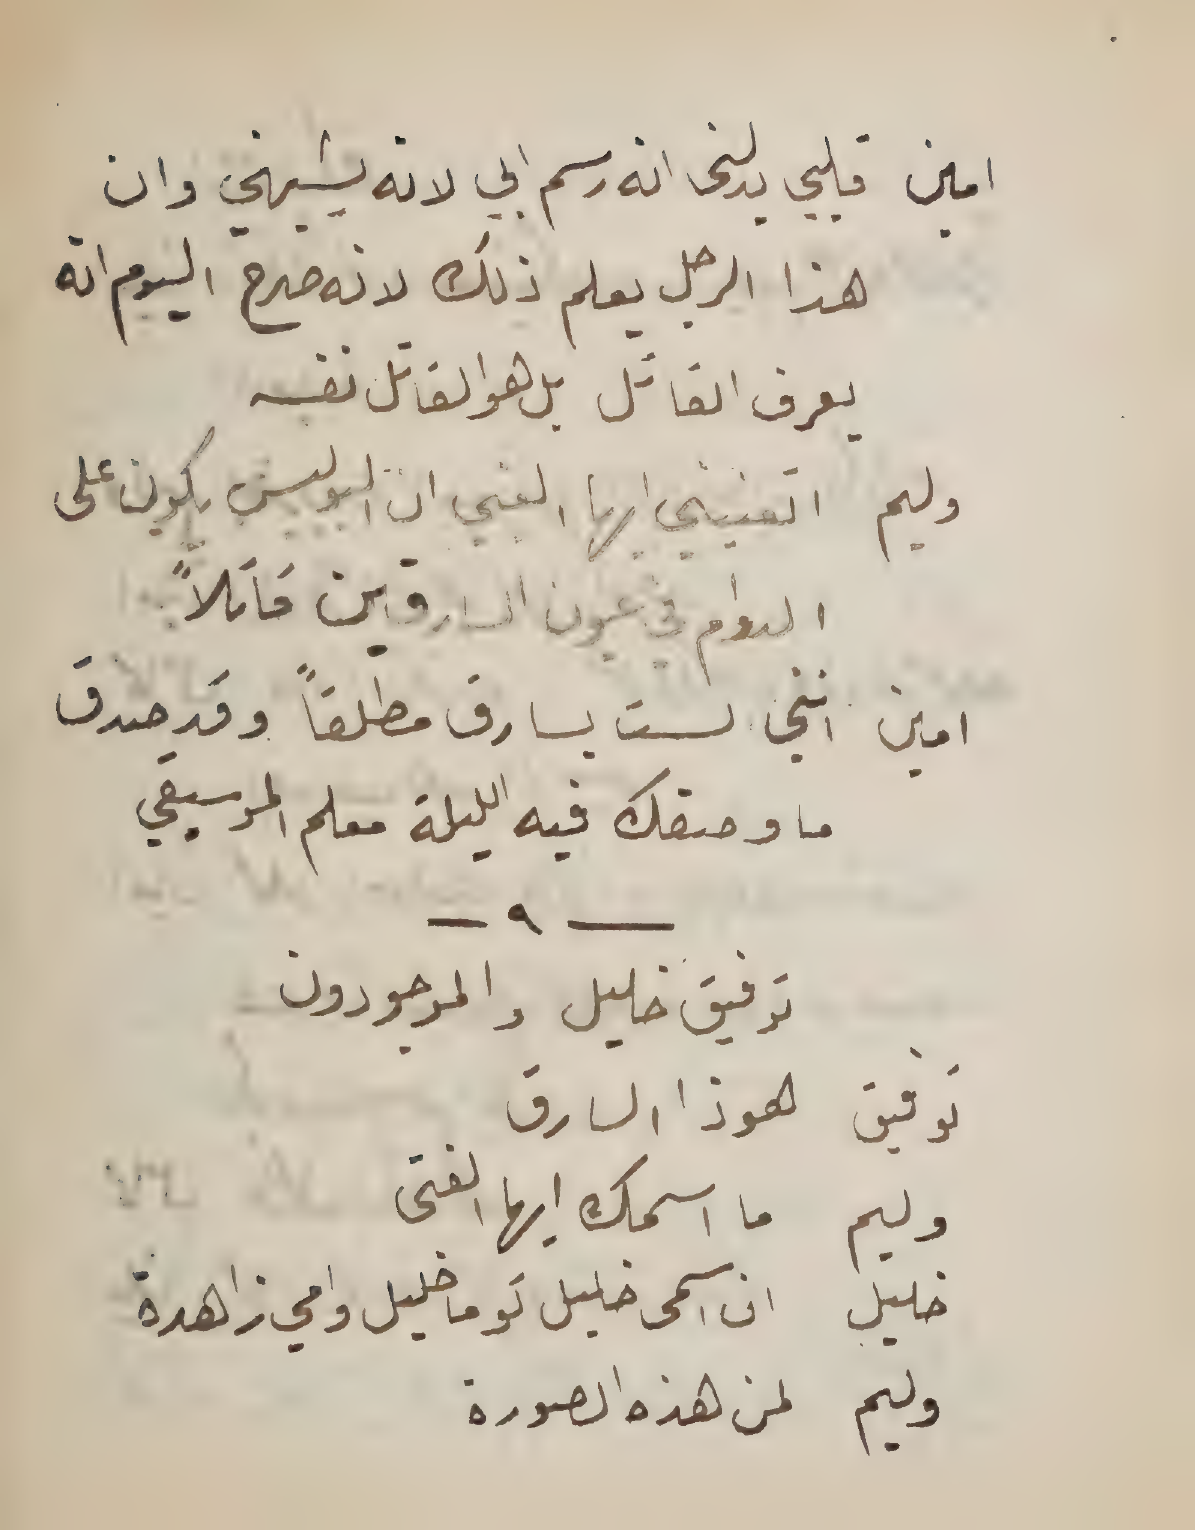 امين قلبي يدلني انه رسم ابي لانه يشبهني وان
هذا الرجل يعلم ذلك لانه صرح اليوم انه
يعرف القاتل بل هو القاتل نفسه
وليم ايها الفتى ان البوليس يكون على
الدوام في عيون السارقين قاتلاً
امين انني لست بسارق مطلقاً وقد صدق
ما وصفك فيه الليلة معلم الموسيقي
— ٩ —
توفيق خليل والموجودون
توفيق هوذا السارق
وليم ما اسمك ايها الفتى
خليل ان اسمى خليل توما خليل وامي زاهدة
وليم لمن هذه الصورة